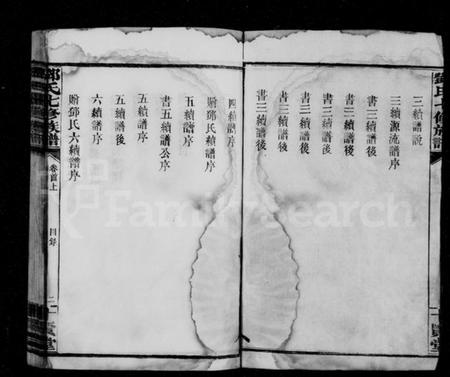 三續譜説
三續源流譜序
書三續譜後
書三續譜後
書三續譜後
書三續譜後
書三續譜後
四續譜序
贈鄧氏續譜序
五續譜序
書五續譜公序
五續譜序
五續譜後
六續譜序
贈鄧氏六續譜序
鄧氏七修族譜
卷首上
目錄
FamilySearch